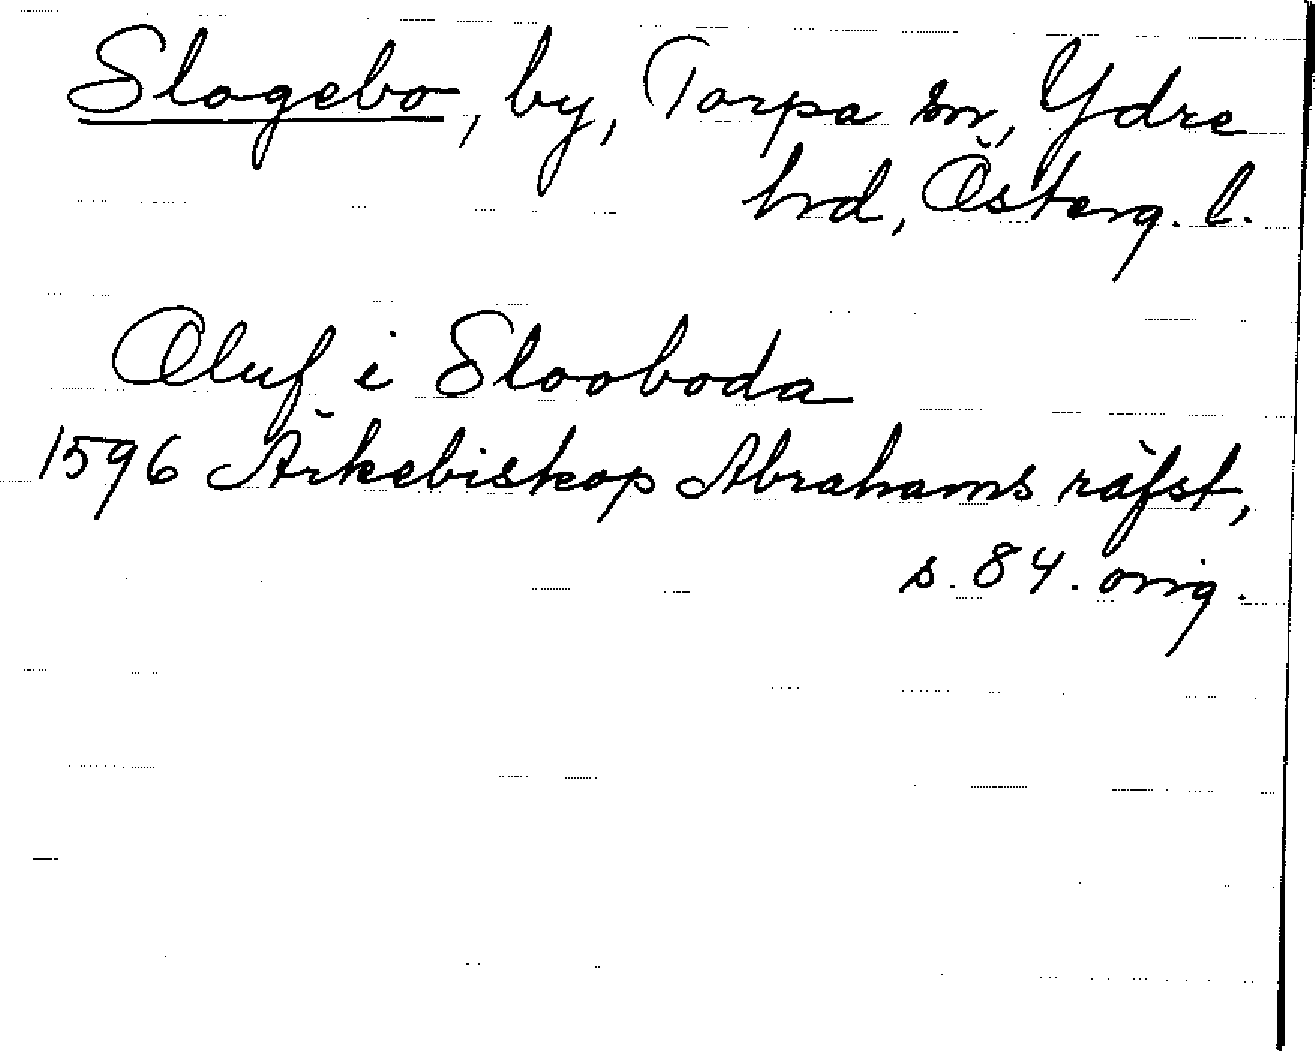 Slogebo, by, Torpa sn, Ydre
hrd, Österg. l.
Oluf i Slooboda
1596 Ärkebiskop Abrahams räfst,
s. 84. orig.